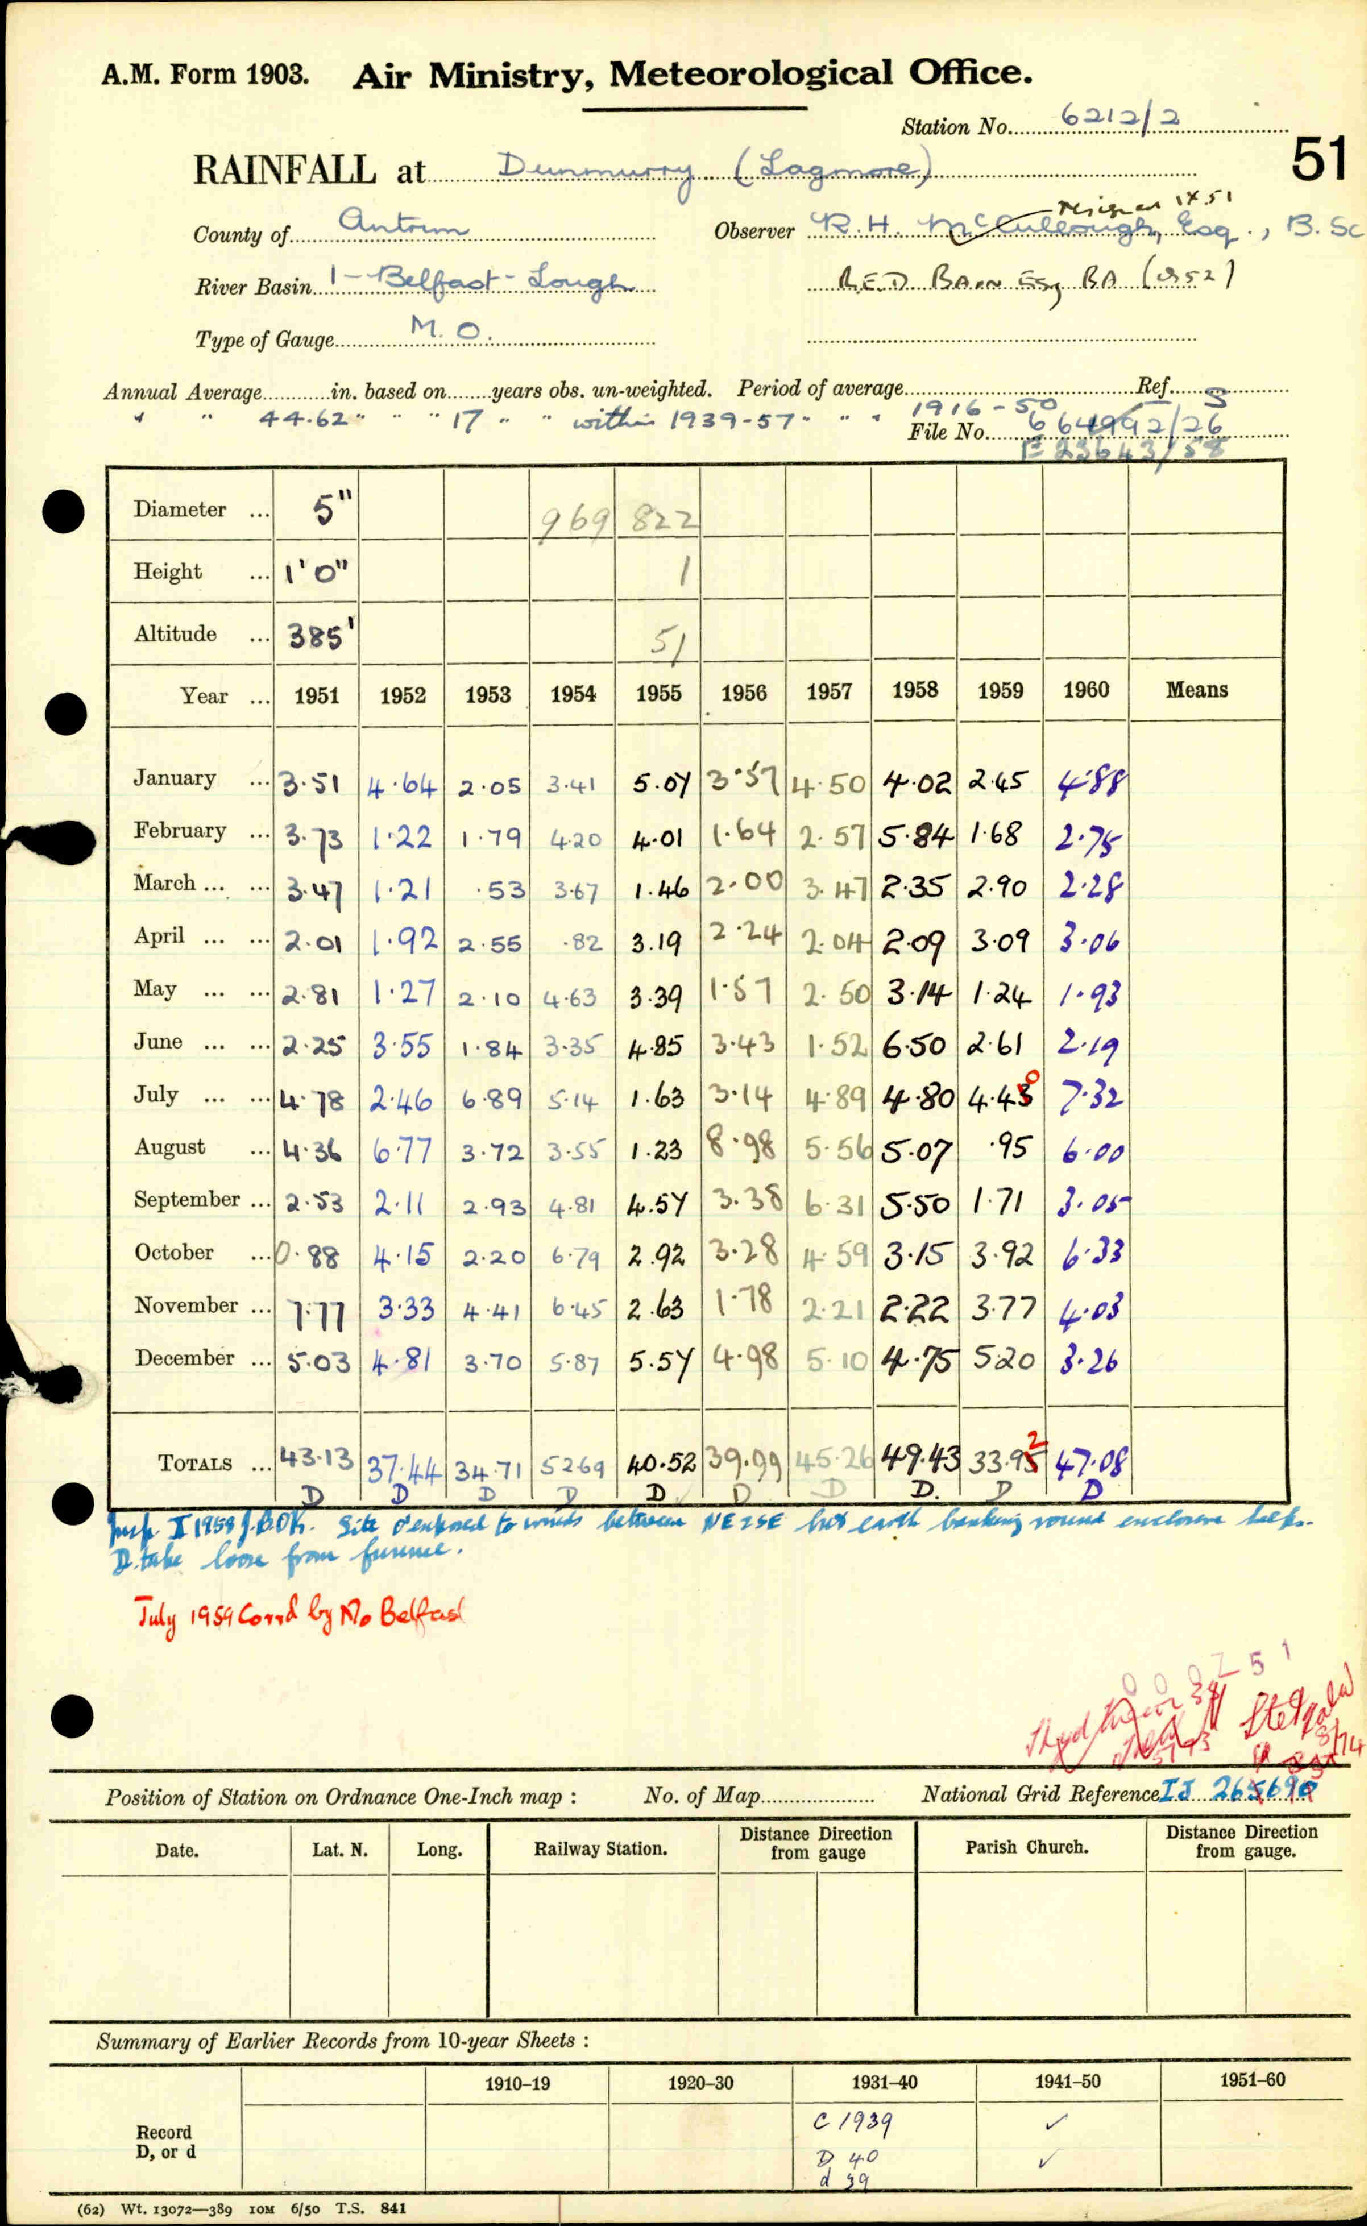 A.M. Form 1903. Air Ministry, Meteorological Office.
Station No. 6212/2
51
RAINFALL at Dunmurry (Lagmore)
resigned IX 51
County of Antrim Observer R.H. McCullough, Esq., B.Sc
River Basin 1 - Belfast - Lough R.E.D. Bain Esq BA (1952)
Type of Gauge M.O.
Annual Average in. based on years obs. un-weighted. Period of average Ref. S
" " 44.62 " " " 17 " " within 1939-57 " " " 1916-50
File No. 664992/26
E 23643/58
Diameter ... 5" 969 822
Height ... 1'0" 1
Altitude ... 385' 51
Year ... 1951 1952 1953 1954 1955 1956 1957 1958 1959 1960 Means
January ... 3.51 4.64 2.05 3.41 5.07 3.57 4.50 4.02 2.45 4.88
February ... 3.73 1.22 1.79 4.20 4.01 1.64 2.57 5.84 1.68 2.75
March ... ... 3.47 1.21 .53 3.67 1.46 2.00 3.47 2.35 2.90 2.28
April ... ... 2.01 1.92 2.55 .82 3.19 2.24 2.04 2.09 3.09 3.06
May ... ... 2.81 1.27 2.10 4.63 3.39 1.57 2.50 3.14 1.24 1.93
June ... ... 2.25 3.55 1.84 3.35 4.85 3.43 1.52 6.50 2.61 2.19
July ... ... 4.78 2.46 6.89 5.14 1.63 3.14 4.89 4.80 4.43 0 7.32
August ... 4.36 6.77 3.72 3.55 1.23 8.98 5.56 5.07 .95 6.00
September ... 2.53 2.11 2.93 4.81 4.57 3.38 6.31 5.50 1.71 3.05
October ... 0.88 4.15 2.20 6.79 2.92 3.28 4.59 3.15 3.92 6.33
November ... 7.77 3.33 4.41 6.45 2.63 1.78 2.21 2.22 3.77 4.03
December ... 5.03 4.81 3.70 5.87 5.57 4.98 5.10 4.75 5.20 3.26
TOTALS ... 43.13 37.44 34.71 52.69 40.52 39.99 45.26 49.43 33.95 2 47.08
D D D D D D D D. D D
Insp I 1958 Site to winds between NE & SE but earth banking round enclosure
loose from
July 1959 Corrd by Mo Belfast
0 0 0 2 5 1
8/74
Position of Station on Ordnance One-Inch map : No. of Map National Grid Reference IJ 265690
Date. Lat. N. Long. Railway Station. Distance Direction from gauge Parish Church. Distance Direction from gauge.
Summary of Earlier Records from 10-year Sheets :
1910-19 1920-30 1931-40 1941-50 1951-60
Record C 1939 ✓
D, or d D 40 ✓
d 39
(62) Wt. 13072—389 10M 6/50 T.S. 841